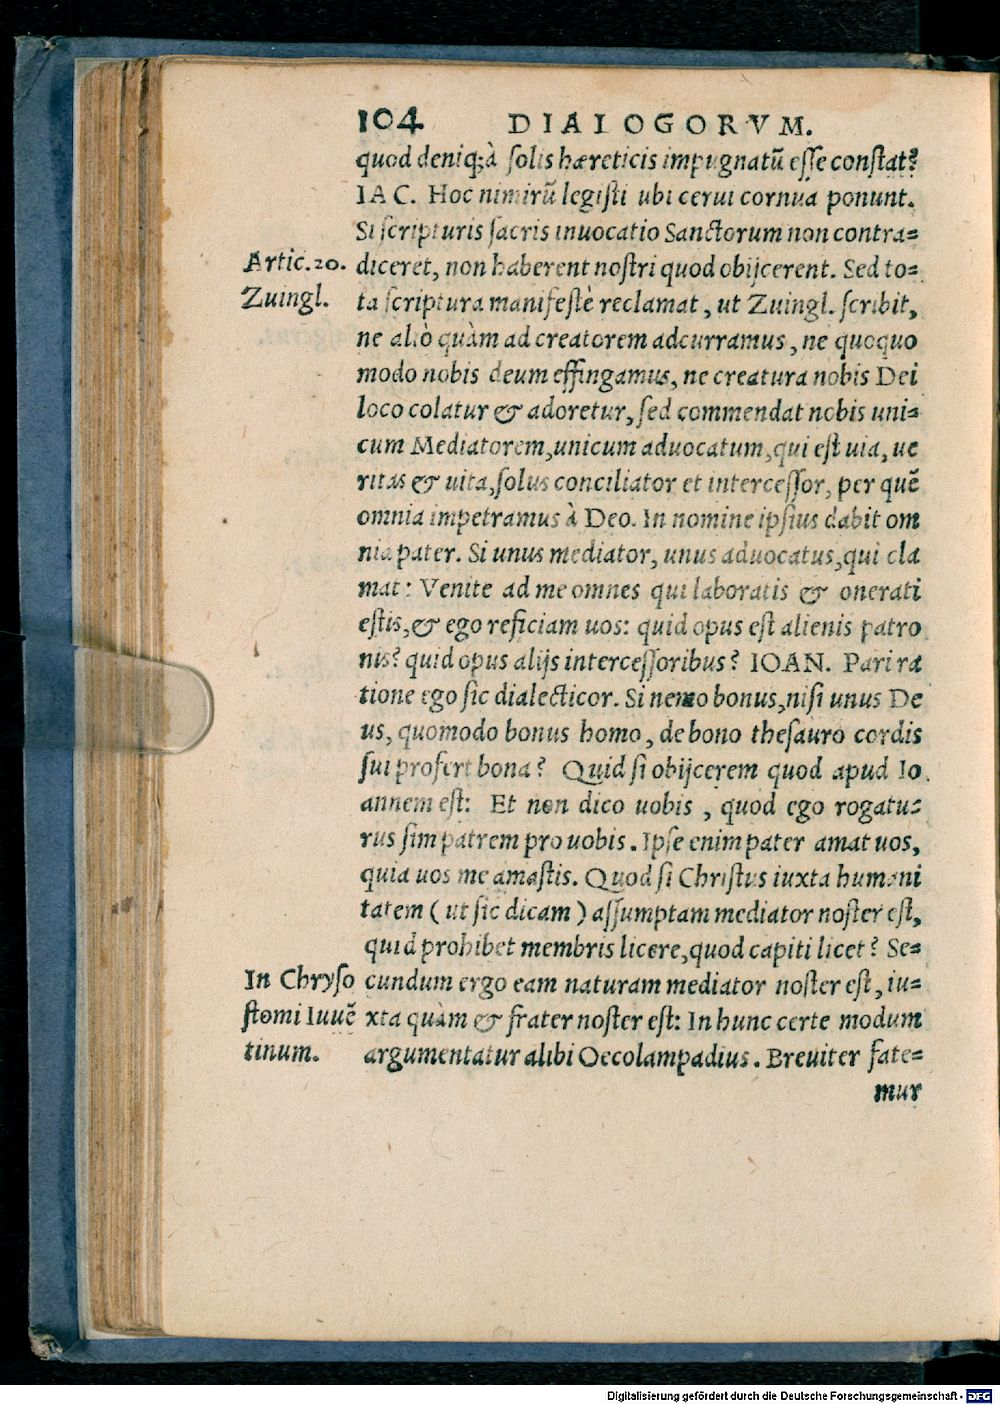 104 DIALOGORVM.
quod deniq;à solis hæreticis impugnatũ esse constat?
IAC. Hoc nimirũ legisti ubi cerui cornua ponunt.
Si scripturis sacris inuocatio Sanctorum non contra=
Artic.20. diceret, non haberent nostri quod obijcerent. Sed to=
Zuingl. ta scriptura manifestè reclamat, ut Zuingl. scribit,
ne aliò quàm ad creatorem adcurramus, ne quoquo
modo nobis deum effingamus, ne creatura nobis Dei
loco colatur & adoretur, sed commendat nobis uni=
cum Mediatorem,unicum aduocatum,qui est uia, ue
ritas & uita,solus conciliator et intercessor, per quẽ
omnia impetramus à Deo. In nomine ipsius dabit om
nia pater. Si unus mediator, unus aduocatus,qui cla
mat: Venite ad me omnes qui laboratis & onerati
estis,& ego reficiam uos: quid opus est alienis patro
nis? quid opus alijs intercessoribus? IOAN. Pari ra
tione ego sic dialecticor. Si nemo bonus,nisi unus De
us, quomodo bonus homo, de bono thesauro cordis
sui profert bona? Quid si obijcerem quod apud Io
annem est: Et non dico uobis, quod ego rogatu=
rus sim patrem pro uobis. Ipse enim pater amat uos,
quia uos me amastis. Quod si Christus iuxta humani
tatem (ut sic dicam) assumptam mediator noster est,
quid prohibet membris licere,quod capiti licet? Se=
In Chryso cundum ergo eam naturam mediator noster est, iu=
stomi Iuuẽ xta quàm & frater noster est: In hunc certe modum
tinum. argumentatur alibi Oecolampadius. Breuiter fate=
mur
Digitalisierung gefördert durch die Deutsche Forschungsgemeinschaft - DFG